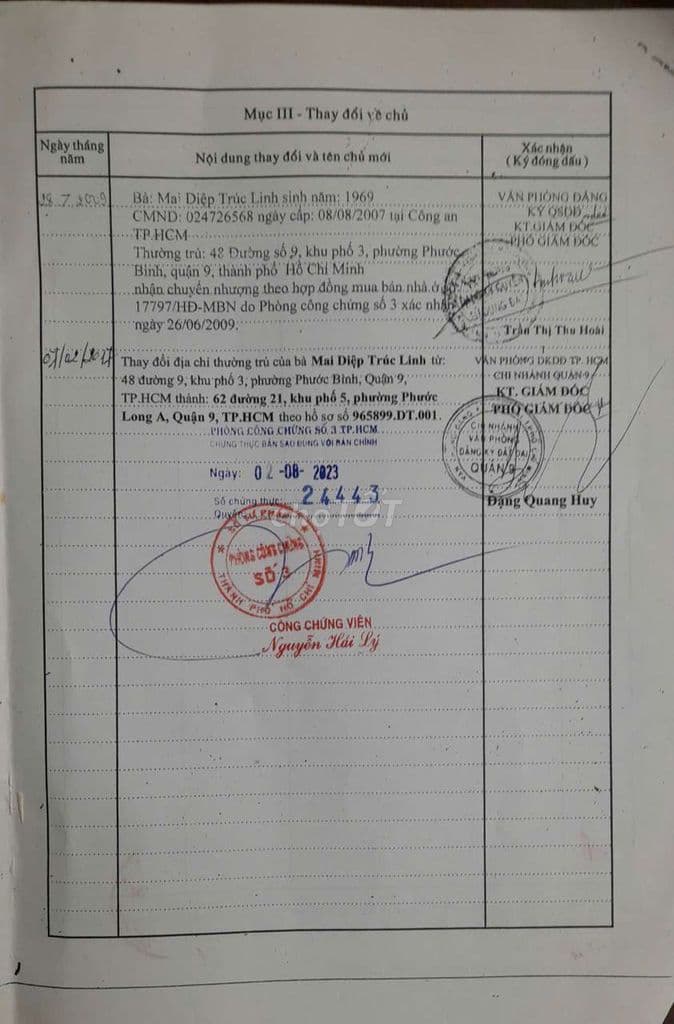 Mục III - Thay đổi về chủ
Ngày tháng năm
Nội dung thay đổi và tên chủ mới
Xác nhận
(Ký đóng dấu)
28.7.2009
Bà: Mai Diệp Trúc Linh sinh năm: 1969
CMND: 024726568 ngày cấp: 08/08/2007 tại Công an
TP.HCM
Thường trú: 48 Đường số 9, khu phố 3, phường Phước
Bình, quận 9, thành phố Hồ Chí Minh
nhận chuyển nhượng theo hợp đồng mua bán nhà ở
17797/HĐ-MBN do Phòng công chứng số 3 xác nhận
ngày 26/06/2009.
VĂN PHÒNG ĐĂNG
KÝ QSDĐ
KT.GIÁM ĐỐC
PHÓ GIÁM ĐỐC
Trần Thị Thu Hoài
Thay đổi địa chỉ thường trú của bà Mai Diệp Trúc Linh từ:
48 đường 9, khu phố 3, phường Phước Bình, Quận 9,
TP.HCM thành: 62 đường 21, khu phố 5, phường Phước
Long A, Quận 9, TP.HCM theo hồ sơ số 965899.DT.001.
VĂN PHÒNG DKDD TP. HCM
CHI NHÁNH QUẬN 9
KT. GIÁM ĐỐC
PHÓ GIÁM ĐỐC
CHI NHÁNH
VĂN PHÒNG
ĐĂNG KÝ ĐẤT ĐAI
QUẬN 9
Đặng Quang Huy
PHÒNG CÔNG CHỨNG SỐ 3 TP.HCM
CHỨNG THỰC BẢN SAO ĐÚNG VỚI BẢN CHÍNH
Ngày: 02-08-2023
Số chứng thực: 24443
chợTỐT
SỞ TƯ PHÁP
PHÒNG CÔNG CHỨNG
SỐ 3
THÀNH PHỐ HỒ CHÍ MINH
CÔNG CHỨNG VIÊN
Nguyễn Hải Lý